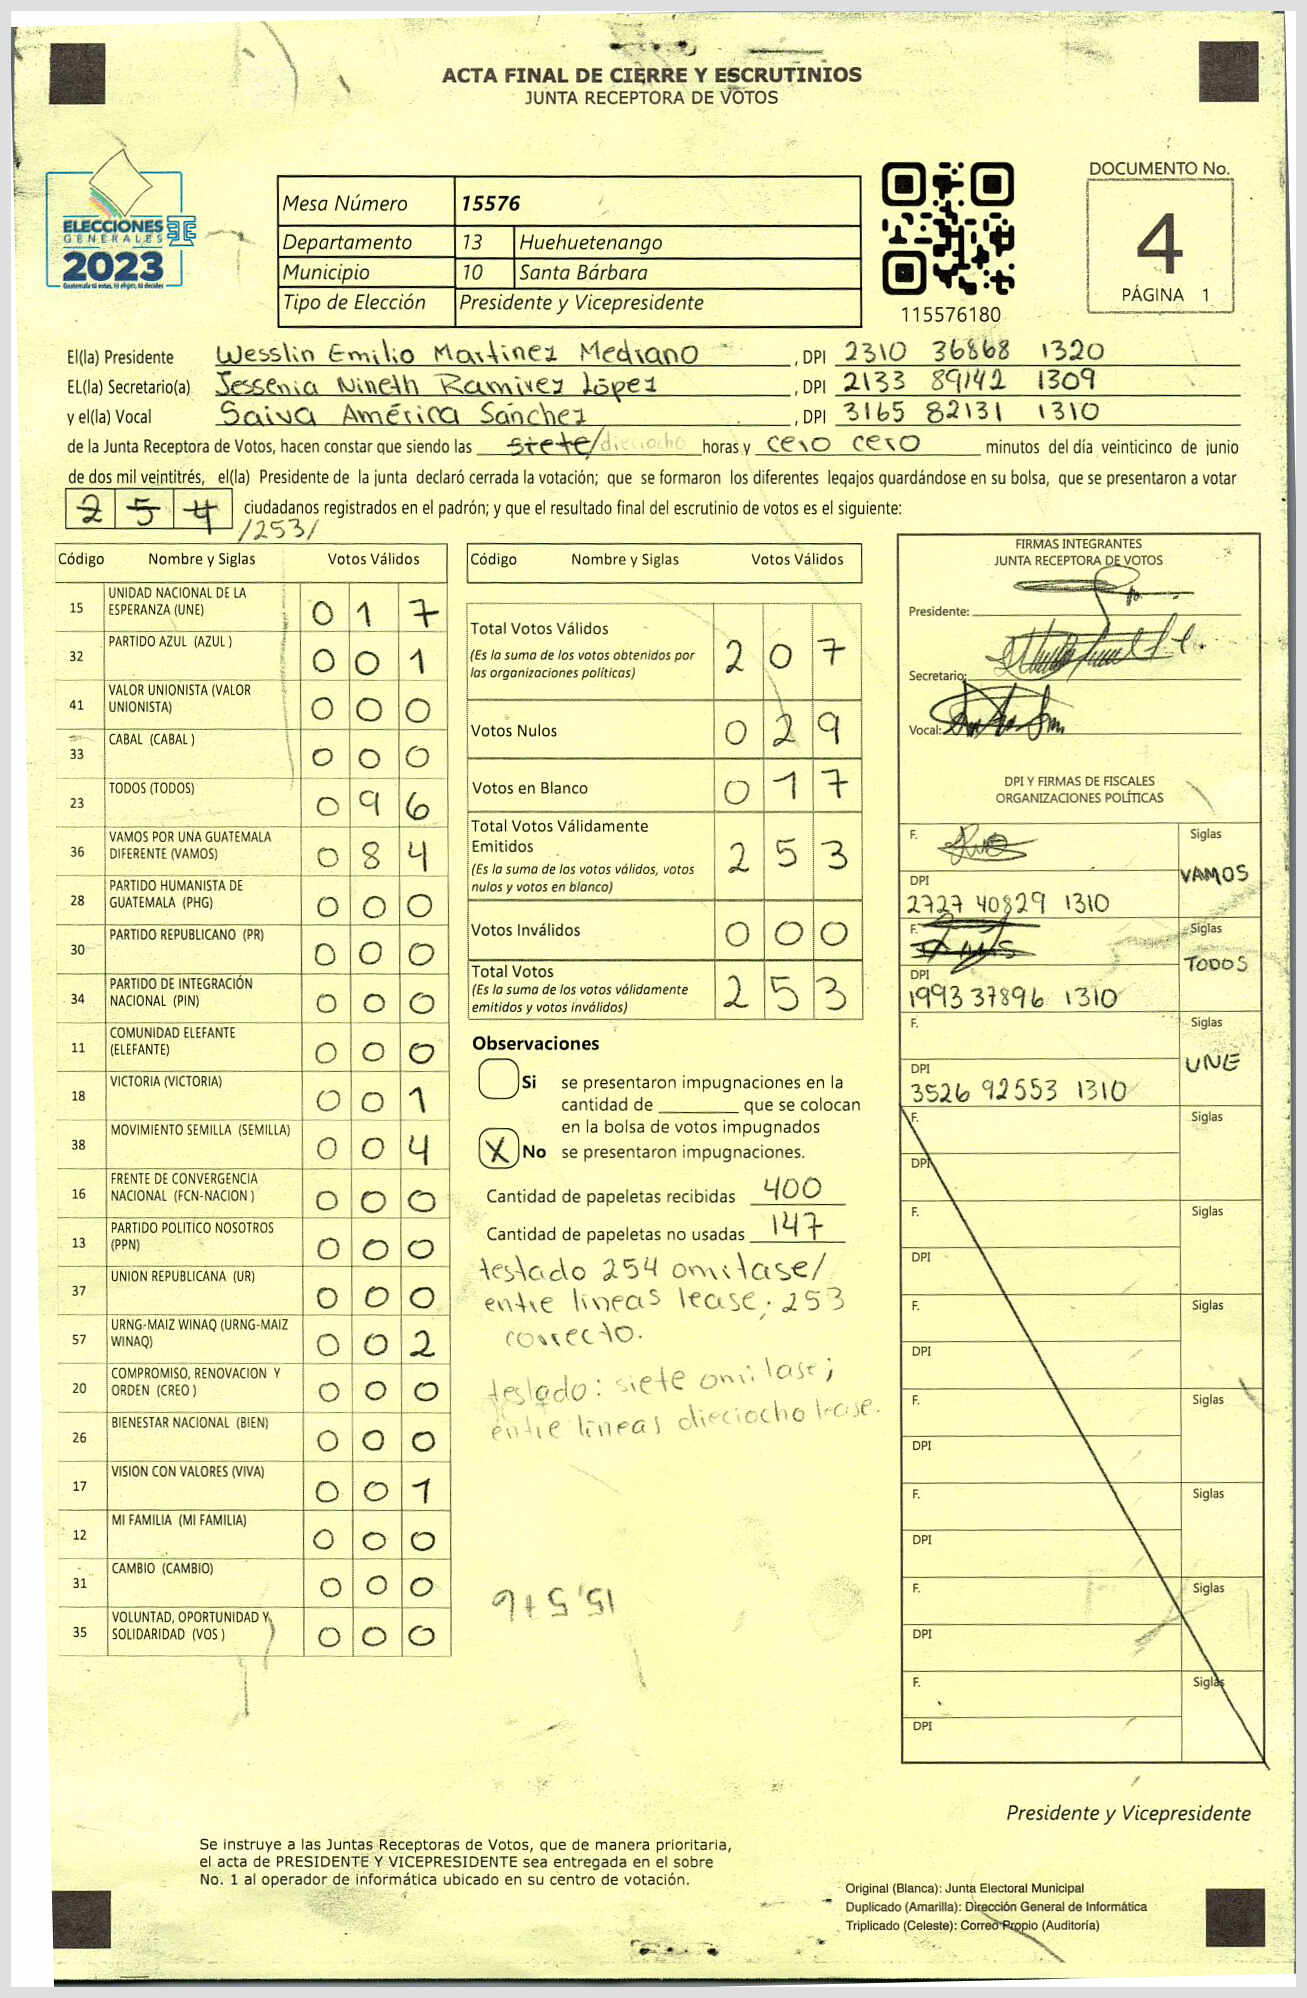 ACTA FINAL DE CIERRE Y ESCRUTINIOS
JUNTA RECEPTORA DE VOTOS
ELECCIONES
GENERALES
2023
Guatemala tú votas, tú eliges, tú decides
Mesa Número 15576
Departamento 13 Huehuetenango
Municipio 10 Santa Bárbara
Tipo de Elección Presidente y Vicepresidente
115576180
DOCUMENTO No.
4
PÁGINA 1
El(la) Presidente Wesslin Emilio Martinez Medrano , DPI 2310 36868 1320
EL(la) Secretario(a) Jessenia Nineth Ramirez López , DPI 2133 89142 1309
y el(la) Vocal Saiva América Sánchez , DPI 3165 82131 1310
de la Junta Receptora de Votos, hacen constar que siendo las siete/dieciocho horas y cero cero minutos del día veinticinco de junio
de dos mil veintitrés, el(la) Presidente de la junta declaró cerrada la votación; que se formaron los diferentes legajos guardándose en su bolsa, que se presentaron a votar
2 5 4 ciudadanos registrados en el padrón; y que el resultado final del escrutinio de votos es el siguiente:
/253/
Código Nombre y Siglas Votos Válidos
15 UNIDAD NACIONAL DE LA
ESPERANZA (UNE) 0 1 7
32 PARTIDO AZUL (AZUL ) 0 0 1
41 VALOR UNIONISTA (VALOR
UNIONISTA) 0 0 0
33 CABAL (CABAL ) 0 0 0
23 TODOS (TODOS) 0 9 6
36 VAMOS POR UNA GUATEMALA
DIFERENTE (VAMOS) 0 8 4
28 PARTIDO HUMANISTA DE
GUATEMALA (PHG) 0 0 0
30 PARTIDO REPUBLICANO (PR) 0 0 0
34 PARTIDO DE INTEGRACIÓN
NACIONAL (PIN) 0 0 0
11 COMUNIDAD ELEFANTE
(ELEFANTE) 0 0 0
18 VICTORIA (VICTORIA) 0 0 1
38 MOVIMIENTO SEMILLA (SEMILLA) 0 0 4
16 FRENTE DE CONVERGENCIA
NACIONAL (FCN-NACION ) 0 0 0
13 PARTIDO POLITICO NOSOTROS
(PPN) 0 0 0
37 UNION REPUBLICANA (UR) 0 0 0
57 URNG-MAIZ WINAQ (URNG-MAIZ
WINAQ) 0 0 2
20 COMPROMISO, RENOVACION Y
ORDEN (CREO ) 0 0 0
26 BIENESTAR NACIONAL (BIEN) 0 0 0
17 VISION CON VALORES (VIVA) 0 0 1
12 MI FAMILIA (MI FAMILIA) 0 0 0
31 CAMBIO (CAMBIO) 0 0 0
35 VOLUNTAD, OPORTUNIDAD Y
SOLIDARIDAD (VOS ) 0 0 0
Código Nombre y Siglas Votos Válidos
Total Votos Válidos
(Es la suma de los votos obtenidos por
las organizaciones políticas) 2 0 7
Votos Nulos 0 2 9
Votos en Blanco 0 1 7
Total Votos Válidamente
Emitidos
(Es la suma de los votos válidos, votos
nulos y votos en blanco) 2 5 3
Votos Inválidos 0 0 0
Total Votos
(Es la suma de los votos válidamente
emitidos y votos inválidos) 2 5 3
Observaciones
Si se presentaron impugnaciones en la
cantidad de ________ que se colocan
en la bolsa de votos impugnados
X No se presentaron impugnaciones.
Cantidad de papeletas recibidas 400
Cantidad de papeletas no usadas 147
testado 254 omitase/
entre lineas lease; 253
correcto.
testado: siete omitase;
entre lineas dieciocho lease.
15,576
FIRMAS INTEGRANTES
JUNTA RECEPTORA DE VOTOS
Presidente:
Secretario:
Vocal:
DPI Y FIRMAS DE FISCALES
ORGANIZACIONES POLÍTICAS
F. Siglas
VAMOS
DPI
2727 40829 1310
F. Siglas
TODOS
DPI
1993 37896 1310
F. Siglas
UNE
DPI
3526 92553 1310
F. Siglas
DPI
F. Siglas
DPI
F. Siglas
DPI
F. Siglas
DPI
F. Siglas
DPI
F. Siglas
DPI
F. Siglas
DPI
Presidente y Vicepresidente
Se instruye a las Juntas Receptoras de Votos, que de manera prioritaria,
el acta de PRESIDENTE Y VICEPRESIDENTE sea entregada en el sobre
No. 1 al operador de informática ubicado en su centro de votación.
Original (Blanca): Junta Electoral Municipal
Duplicado (Amarilla): Dirección General de Informática
Triplicado (Celeste): Correo Propio (Auditoría)